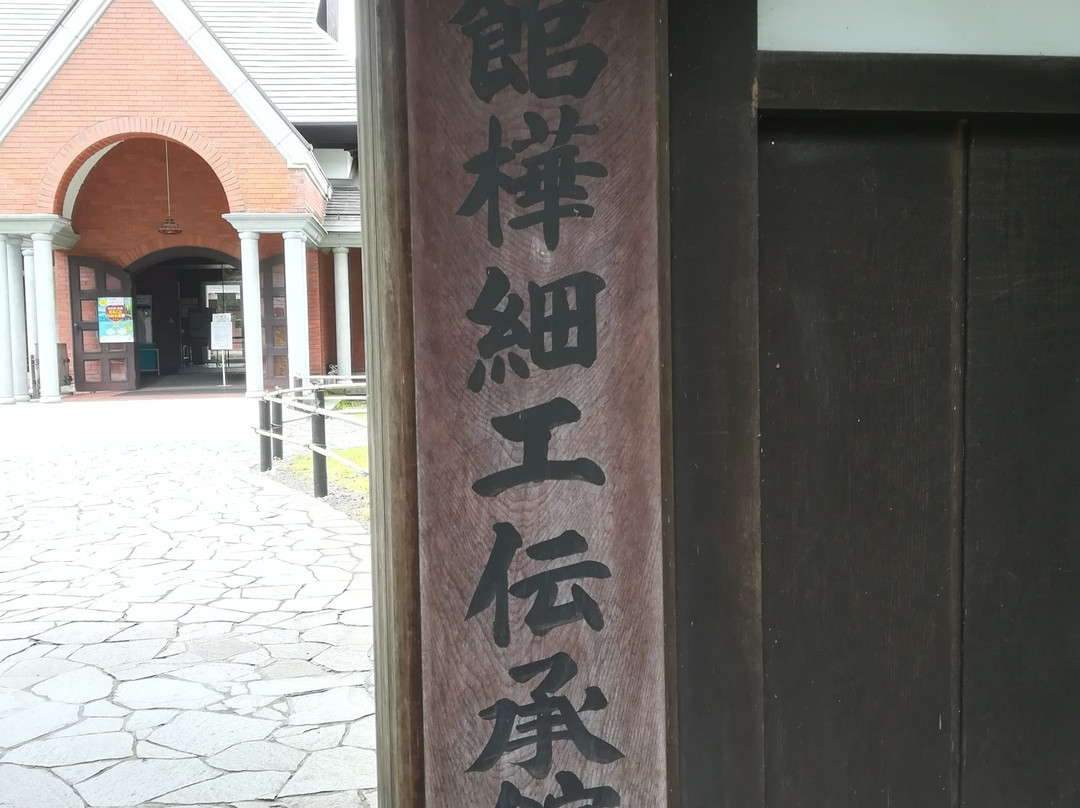 館樺細工伝承館